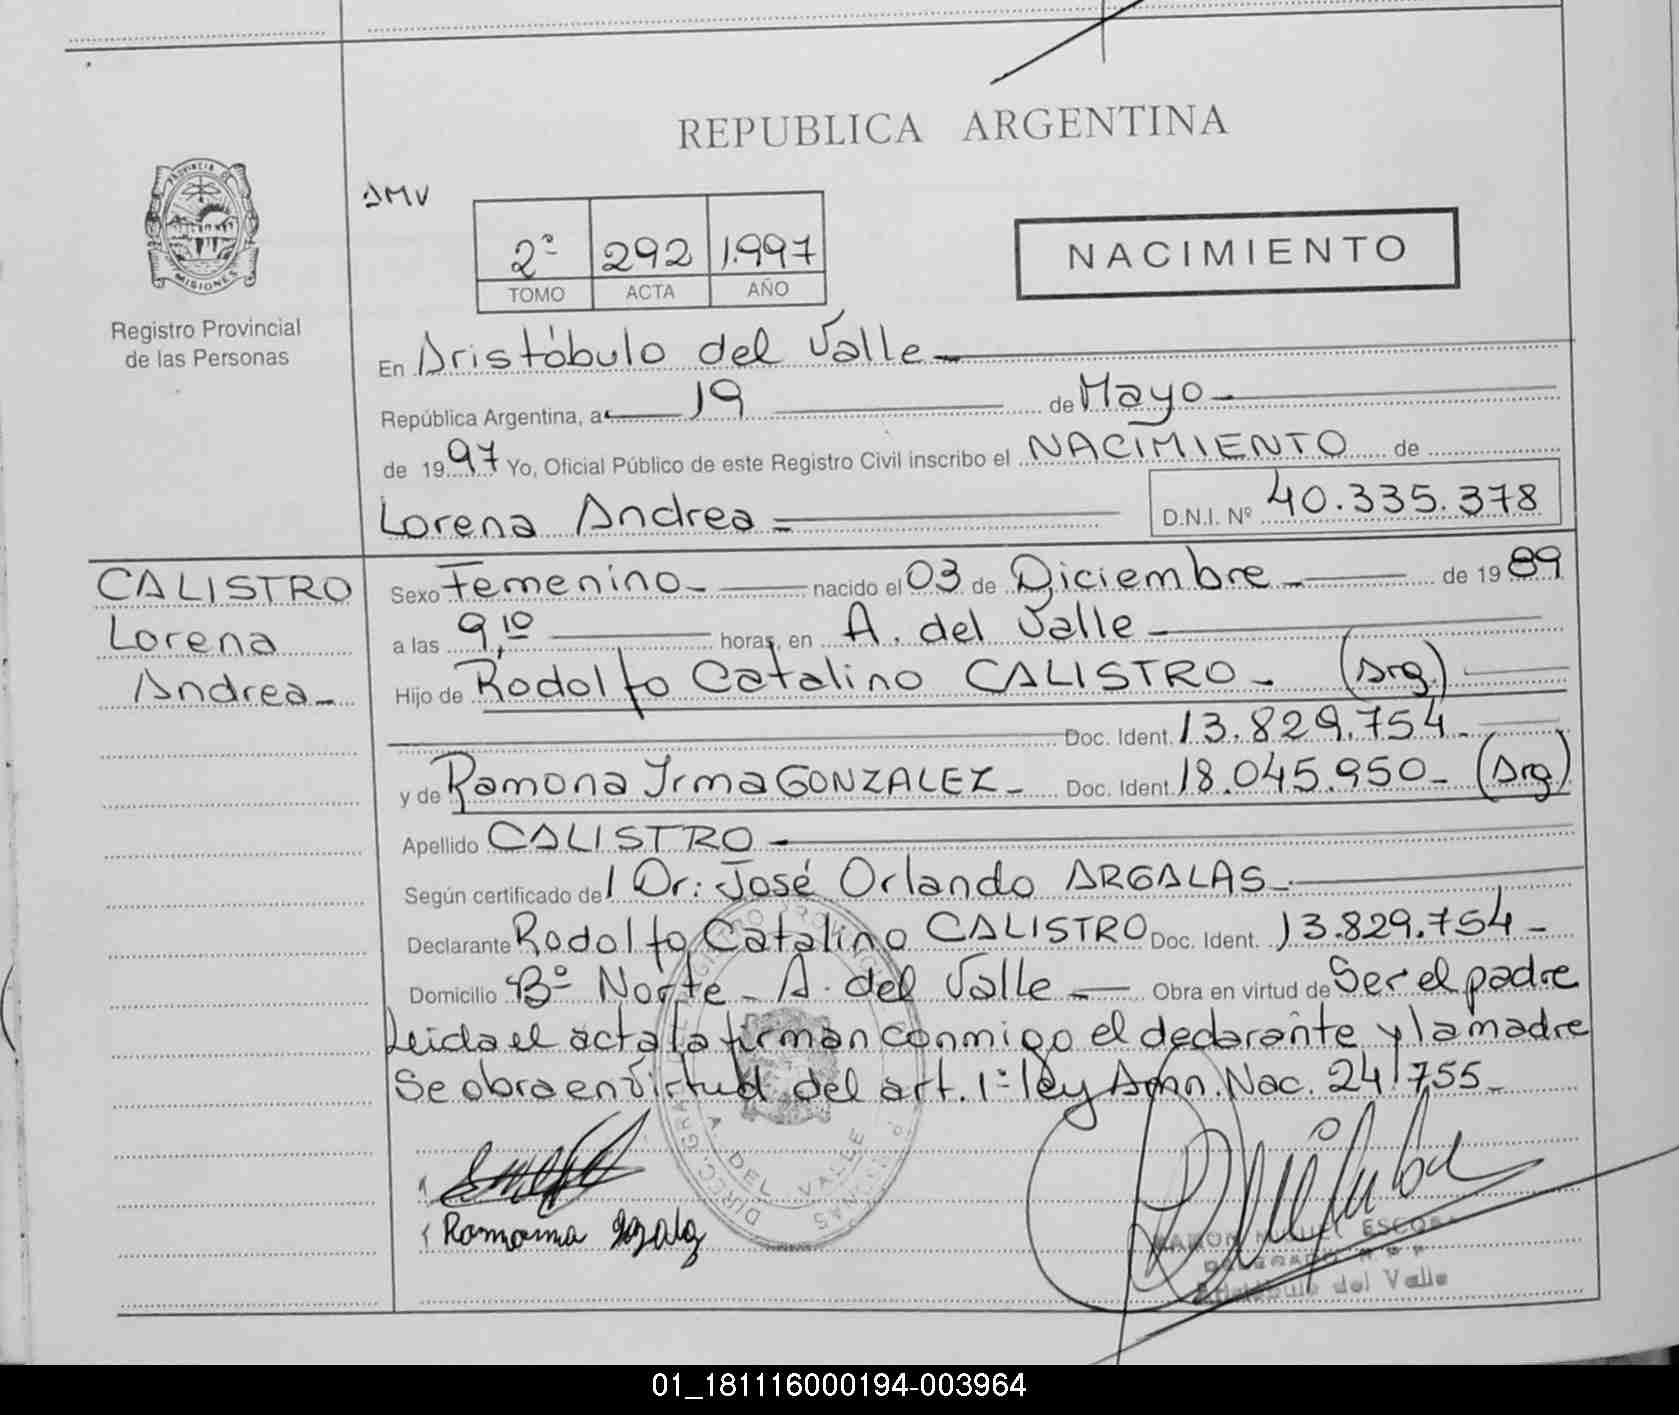 REPUBLICA ARGENTINA
PROVINCIA DE
MISIONES
Registro Provincial
de las Personas
AMV
2º 292 1.997
TOMO ACTA AÑO
NACIMIENTO
En Aristóbulo del Valle
República Argentina, a 19 de Mayo
de 1997 Yo, Oficial Público de este Registro Civil inscribo el NACIMIENTO de
Lorena Andrea D.N.I. Nº 40.335.378
CALISTRO
Lorena
Andrea
Sexo Femenino nacido el 03 de Diciembre de 1989
a las 9,10 horas, en A. del Valle
Hijo de Rodolfo Catalino CALISTRO (Arg.)
Doc. Ident. 13.829.754
y de Ramona Irma GONZALEZ Doc. Ident. 18.045.950 (Arg)
Apellido CALISTRO
Según certificado del Dr: José Orlando ARGALAS
Declarante Rodolfo Catalino CALISTRO Doc. Ident. 13.829.754
Domicilio Bº Norte - A. del Valle Obra en virtud de Ser el padre
Leida el acta la firman conmigo el declarante y la madre
Se obra en virtud del art. 1º ley Amn. Nac. 24.755
A. DEL VALLE
RAMON MIGUEL ESCOBAR
DELEGADO R P P
Aristóbulo del Valle
01_181116000194-003964